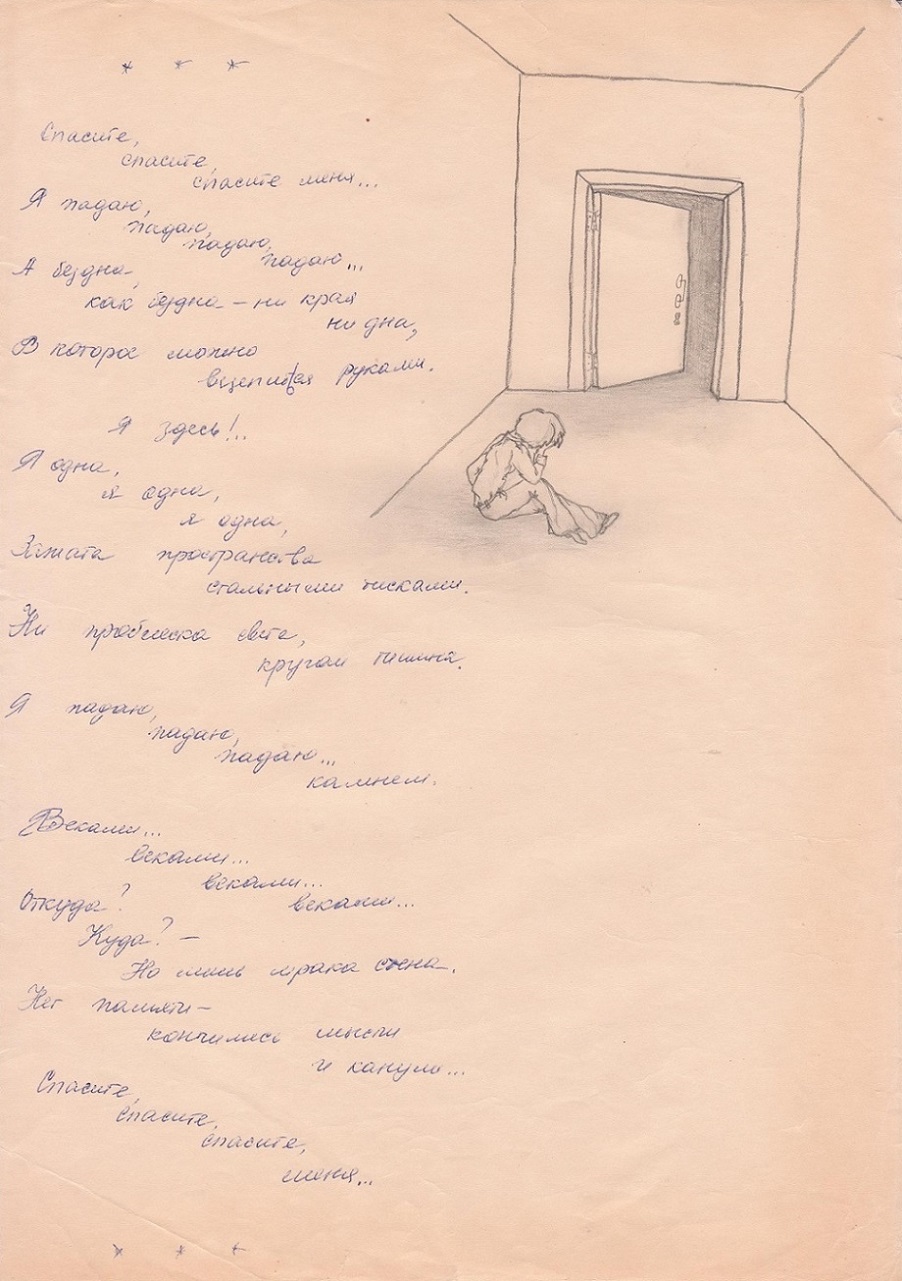 * * *
Спасите,
спасите,
спасите меня...
Я падаю,
падаю,
падаю,
падаю...
А бездна,
как бездна – ни края
ни дна,
В которое можно
вцепиться руками.
Я здесь!..
Я одна,
я одна,
я одна,
Зажата пространства
стальными тисками.
Ни проблеска света,
кругом тишина.
Я падаю,
падаю,
падаю...
камнем.
Веками...
веками...
веками...
веками...
Откуда?
Куда? –
Но лишь мрака стена.
Нет памяти –
кончились мысли
и канули...
Спасите,
спасите,
спасите,
меня...
* * *